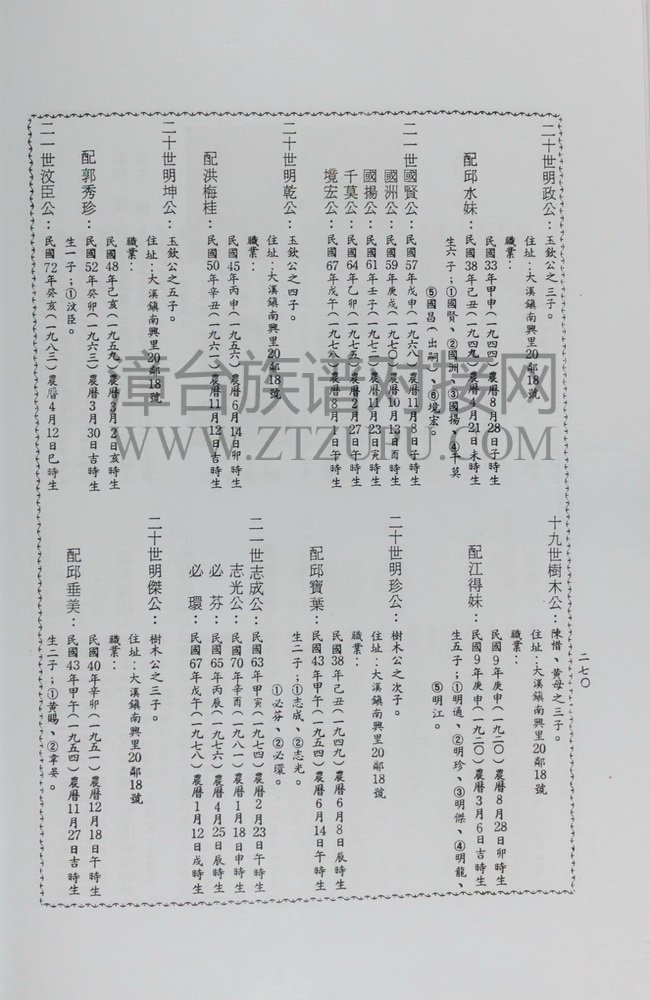 二十世明政公：玉欽公之三子。
住址：大溪鎮南興里20鄰18號
職業：
民國33年甲申(一九四四)農曆8月28日子時生
配邱水妹：民國38年己丑(一九四九)農曆4月21日未時生
生六子；①國賢、②國洲、③國揚、④千莫
⑤國昌(出嗣)、⑥境宏。
二一世國賢公：民國57年戊申(一九六八)農曆11月8日子時生
國洲公：民國59年庚戌(一九七〇)農曆10月13日酉時生
國揚公：民國61年壬子(一九七二)農曆11月23日寅時生
千莫公：民國64年乙卯(一九七五)農曆2月27日午時生
境宏公：民國67年戊午(一九七八)農曆8月1日午時生
二十世明乾公：玉欽公之四子。
住址：大溪鎮南興里20鄰18號
職業：
民國45年丙申(一九五六)農曆6月14日卯時生
配洪梅桂：民國50年辛丑(一九六一)農曆11月12日吉時生
二十世明坤公：玉欽公之五子。
住址：大溪鎮南興里20鄰18號
職業：
民國48年己亥(一九五九)農曆3月2日亥時生
配郭秀珍：民國52年癸卯(一九六三)農曆3月30日吉時生
生一子；①汶臣。
二一世汶臣公：民國72年癸亥(一九八三)農曆4月12日巳時生
二七〇
十九世樹木公：陳惜、黃母之三子。
住址：大溪鎮南興里20鄰18號
職業：
民國9年庚申(一九二〇)農曆8月28日卯時生
配江得妹：民國9年庚申(一九二〇)農曆3月6日吉時生
生五子；①明通、②明珍、③明傑、④明龍、
⑤明江。
二十世明珍公：樹木公之次子。
住址：大溪鎮南興里20鄰18號
職業：
民國38年己丑(一九四九)農曆6月8日辰時生
配邱寶葉：民國43年甲午(一九五四)農曆6月14日午時生
生二子；①志成、②志光。
①必芬、②必環。
二一世志成公：民國63年甲寅(一九七四)農曆2月23日午時生
志光公：民國70年辛酉(一九八一)農曆1月18日申時生
必芬：民國65年丙辰(一九七六)農曆4月25日辰時生
必環：民國67年戊午(一九七八)農曆1月12日戌時生
二十世明傑公：樹木公之三子。
住址：大溪鎮南興里20鄰18號
職業：
民國40年辛卯(一九五一)農曆12月18日午時生
配邱垂美：民國43年甲午(一九五四)農曆11月27日吉時生
生二子；①黃賜、②韋晏。
章台族谱对接网
WWW.ZTZUPU.COM